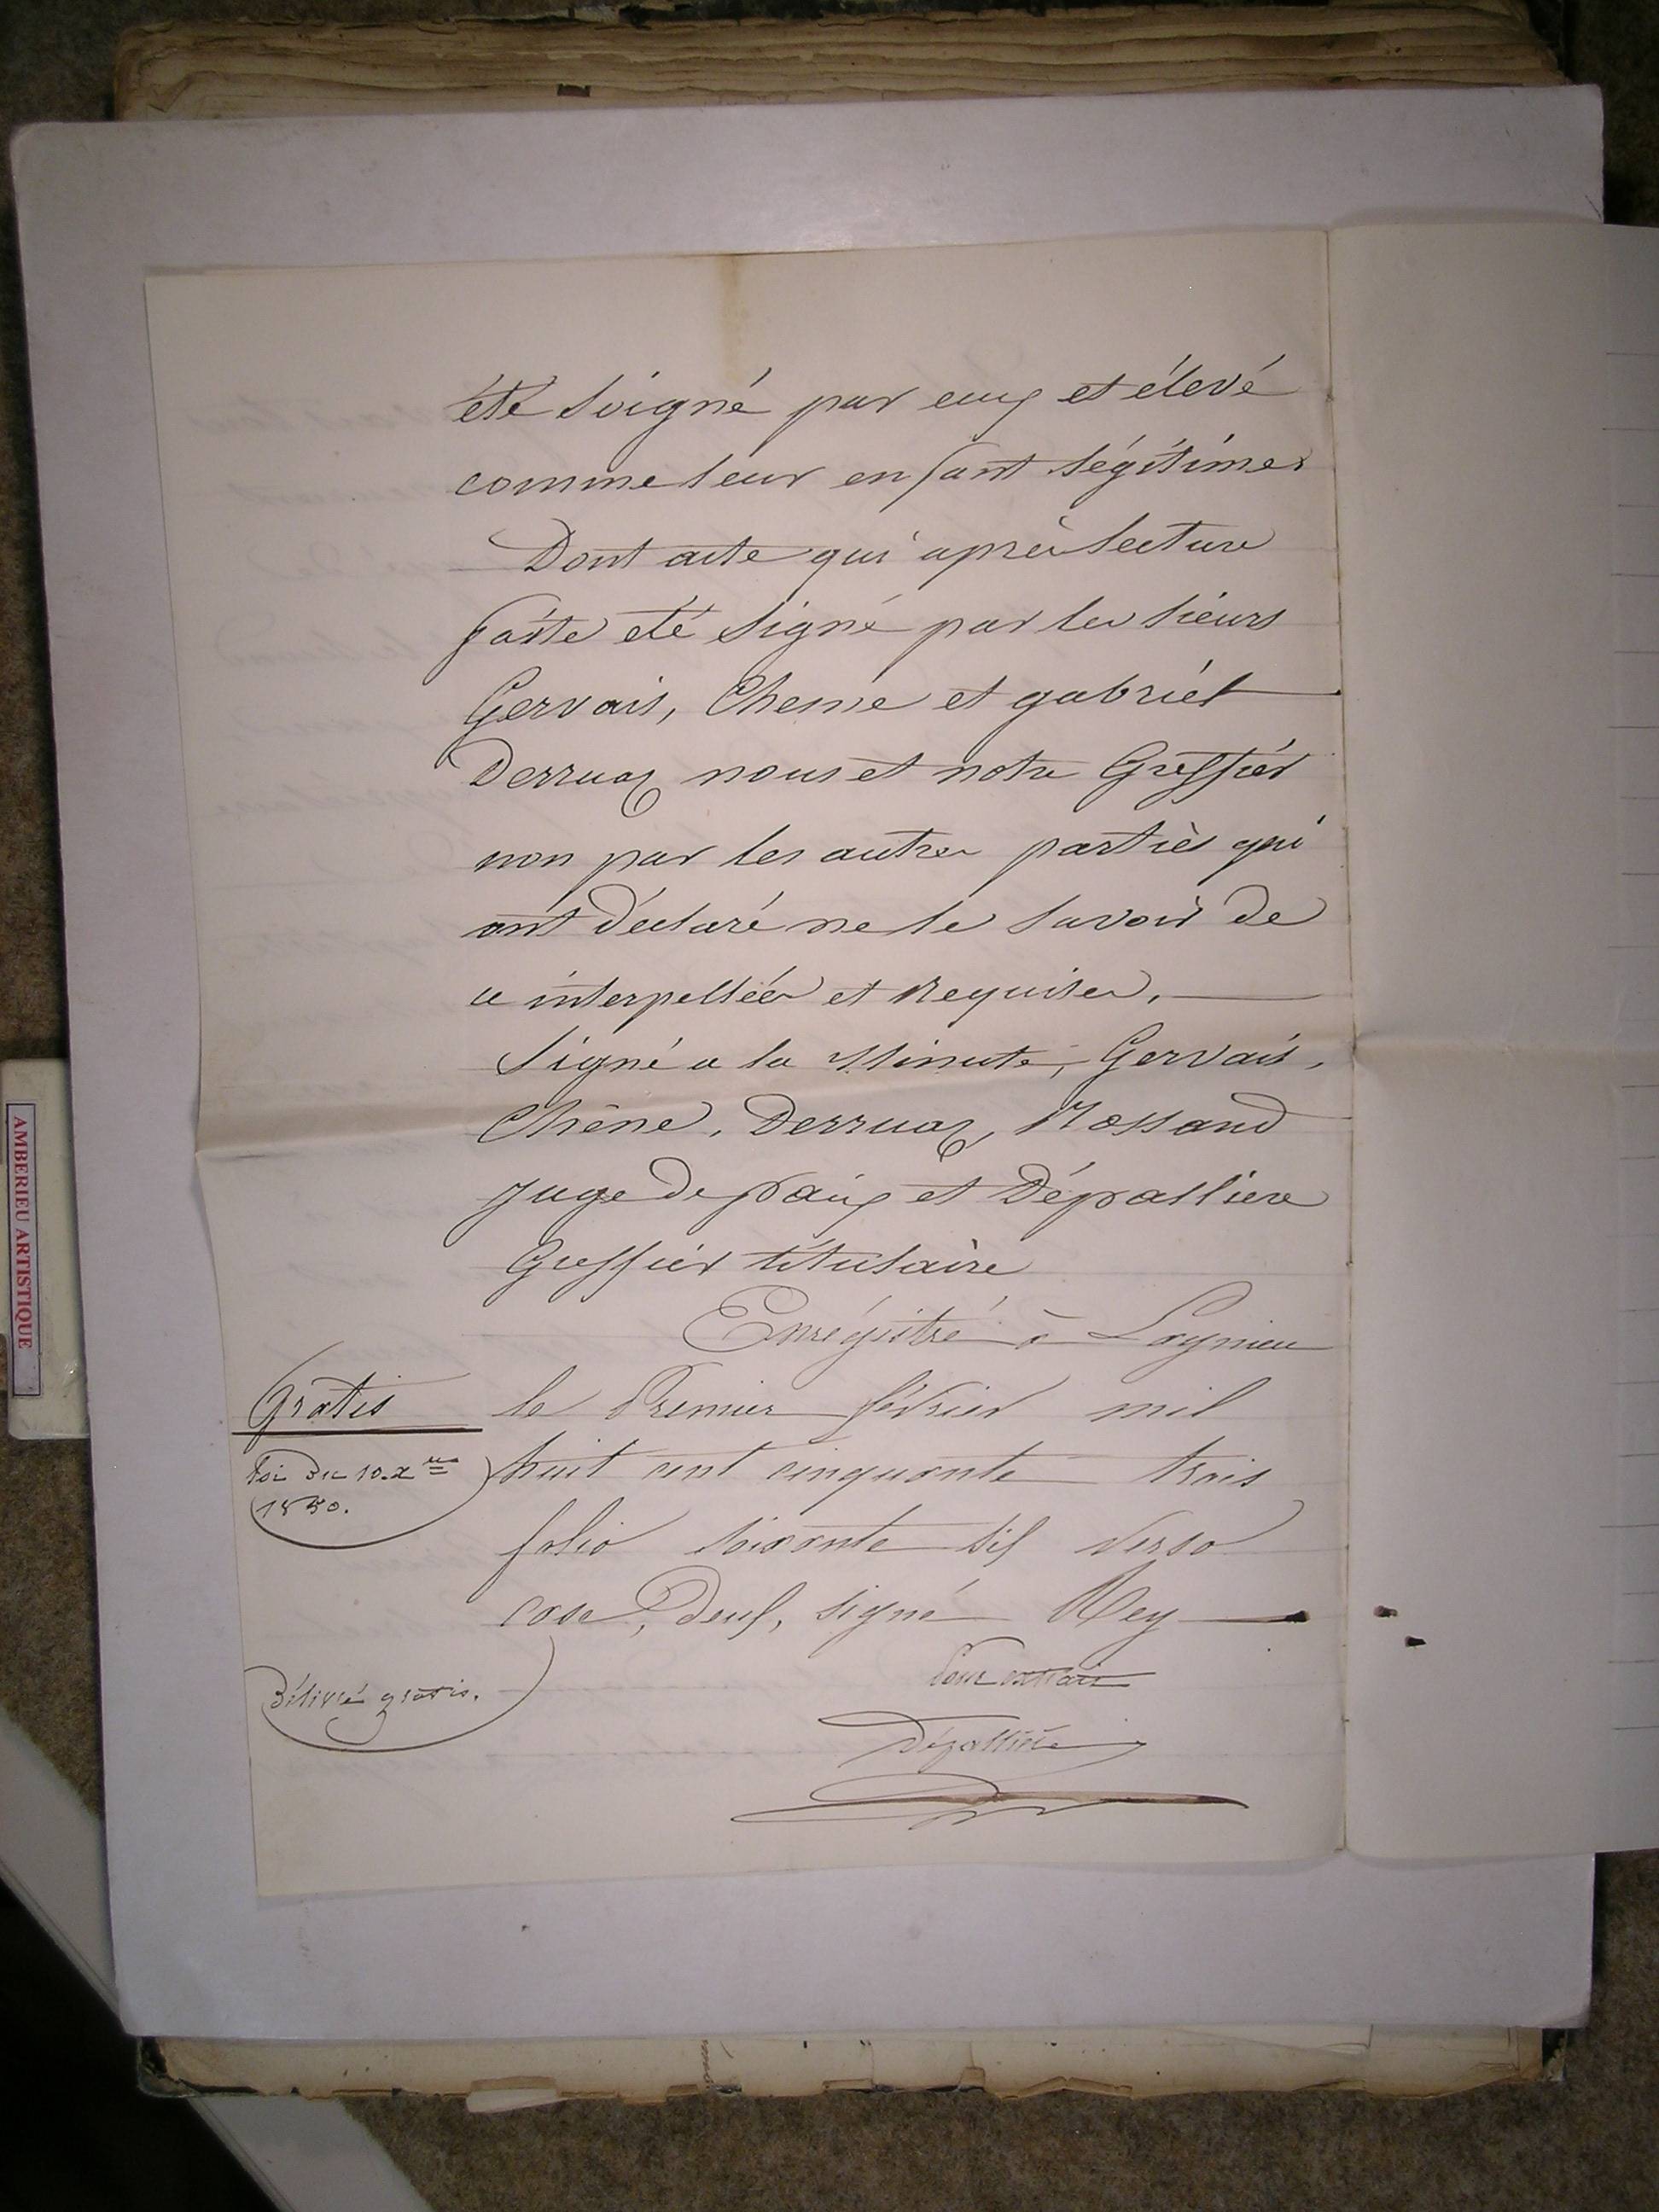 été soigné par eux et élevé
comme leur enfant légitime
Dont acte qui après lecture
faite été signé par les sieurs
Gervais, Chene et gabriel
Derruaz nous et notre Greffier
non par les autres parties qui
ont déclaré ne le savoir de
ce interpellées et Requises.
Signé a la Minute, Gervais,
Chêne, Derruaz, Rossand
juge de paix et Dépalliere
Greffier titulaire
Enrégistré à Lagnieu
Gratis
le Premier février mil
Loi du 10. Xbre
1850.
huit cent cinquante trois
folio soixante six verso
case, deux, signé Rey
Pour extrait
Délivré gratis.
Dépallière
AMBERIEU ARTISTIQUE